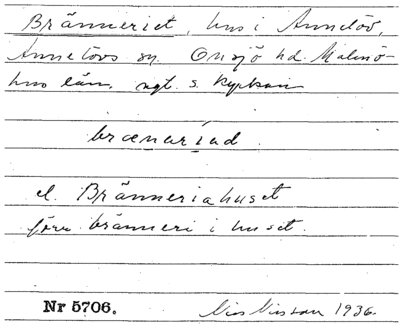 Bränneriet, hus i Annelöv,
Annelövs sn. Onsjö hd. Malmö-
hus län, ngt. s. kyrkan
brænaríad.
el. Bränneriahuset
förr bränneri i huset.
Nr 5706. Nils Nilsson 1936.